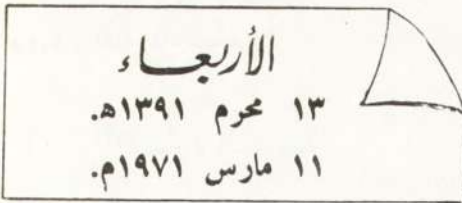 الأربعاء
١٣ محرم ١٣٩١هـ.
١١ مارس ١٩٧١م.